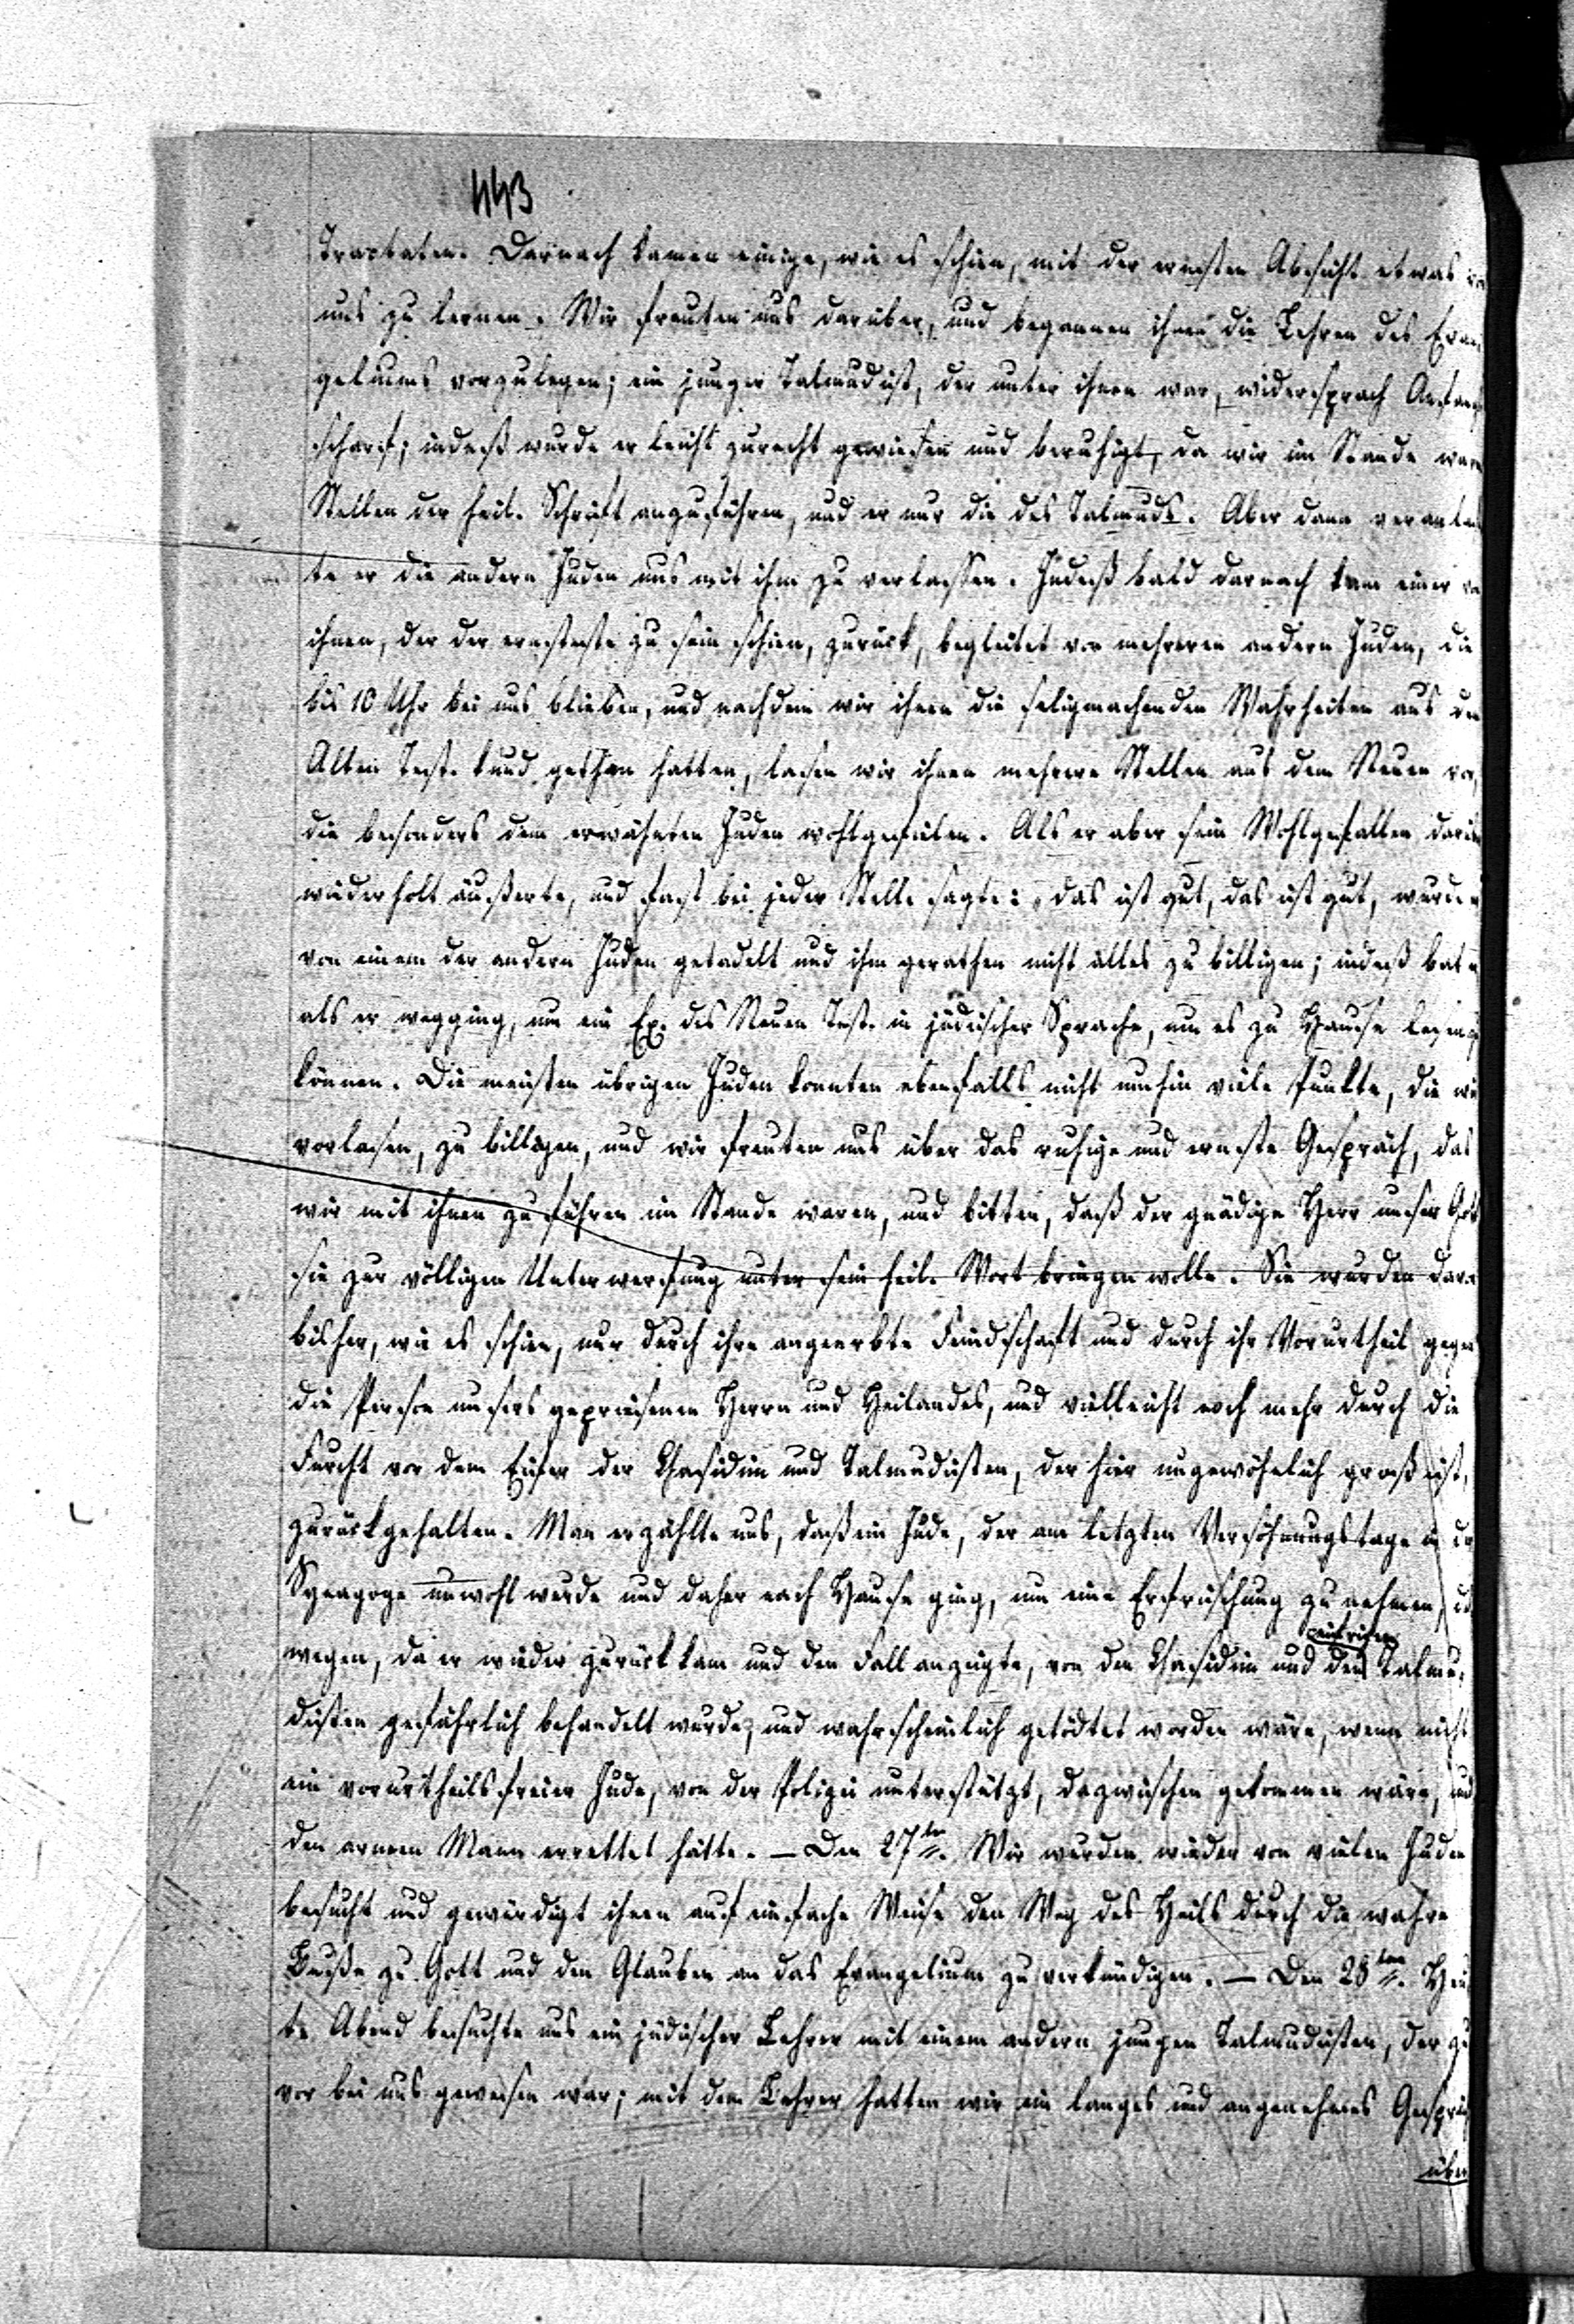 443
Tractaten. Darnach kamen einige, wie es schien, mit der ernsten Absicht etwas
uns zu lernen. Wir freuten uns darüber, und begannen ihnen die Lehren des Evan
geliums vorzulegen; ein junger Talmudist, der unter ihnen war, widersprach Anfangs
scharf; indeß wurde er leicht zurecht gewiesen und beruhigt, da wir im Stande waren
Stellen der heil. Schrift anzuführen, und er nur die des Talmuds. Aber dann veranlaß
te er die andern Juden uns mit ihm zu verlassen. Indeß bald darnach kam einer
ihnen, der der ernsteste zu sein schien, zurück, begleitet von mehreren andern Juden, die
bis 10 Uhr bei uns blieben, und nachdem wir ihnen die seligmachenden Wahrheiten aus dem
Alten Test. kund gethan hatten, lasen wir ihnen mehrere Stellen aus dem Neuen vor,
die besonders dem erwähnten Juden wohlgefielen. Als er aber sein Wohlgefallen
wiederholt äußerte, und fast bei jeder Stelle sagte: das ist gut, das ist gut, wurde
von einem der andern Juden getadelt und ihm gerathen nicht alles zu billigen; indeß bat
als er wegging, um ein Ex. des Neuen Test. in jüdischer Sprache, um es zu Hause lesen zu
können. Die meisten übrigen Juden konnten ebenfalls nicht umhin viele Punkte, die wir
vorlasen, zu billigen, und wir freuten uns über das ruhige und ernste Gespräch, das
wir mit ihnen zu führen im Stande waren, und bitten, daß der gnädige Herr unser Gott
sie zur völligen Unterwerfung unter sein heil. Wort bringen wolle. Sie wurden
bisher, wie es schien, nur durch ihre angeerbte Feindschaft und durch ihr Vorurtheil gegen
die Person unsers gepriesenen Herrn und Heilandes, und vielleicht noch mehr durch die
Furcht vor dem Eifer der Chasidim und Talmudisten, der hier ungewöhnlich groß ist,
zurückgehalten. Man erzählte uns, daß ein Jude, der am letzten Versöhnungstage in der
Synagoge unwohl wurde und daher nach Hause ging, um eine Erfrischung zu nehmen,
wegen, da er wieder zurück kam und den Fall anzeigte, von den Chasidim und den eifrigen Talmu-
disten gefährlich behandelt wurde, und wahrscheinlich getödtet worden wäre, wenn nicht
ein vorurtheilsfreier Jude, von der Polizei unterstützt, dazwischen gekommen wäre, und
den armen Mann errettet hätte. – Den 27ten. Wir wurden wieder von vielen Juden
besucht und gewürdigt ihnen auf einfache Weise den Weg des Heils durch die wahre
Buße zu Gott und den Glauben an das Evangelium zu verkündigen. – Den 28ten. Heu
te Abend besuchte uns ein jüdischer Lehrer mit einem andern jungen Talmudisten, der zu
vor bei uns gewesen war; mit dem Lehrer hatten wir ein langes und angenehmes Gespräch
über